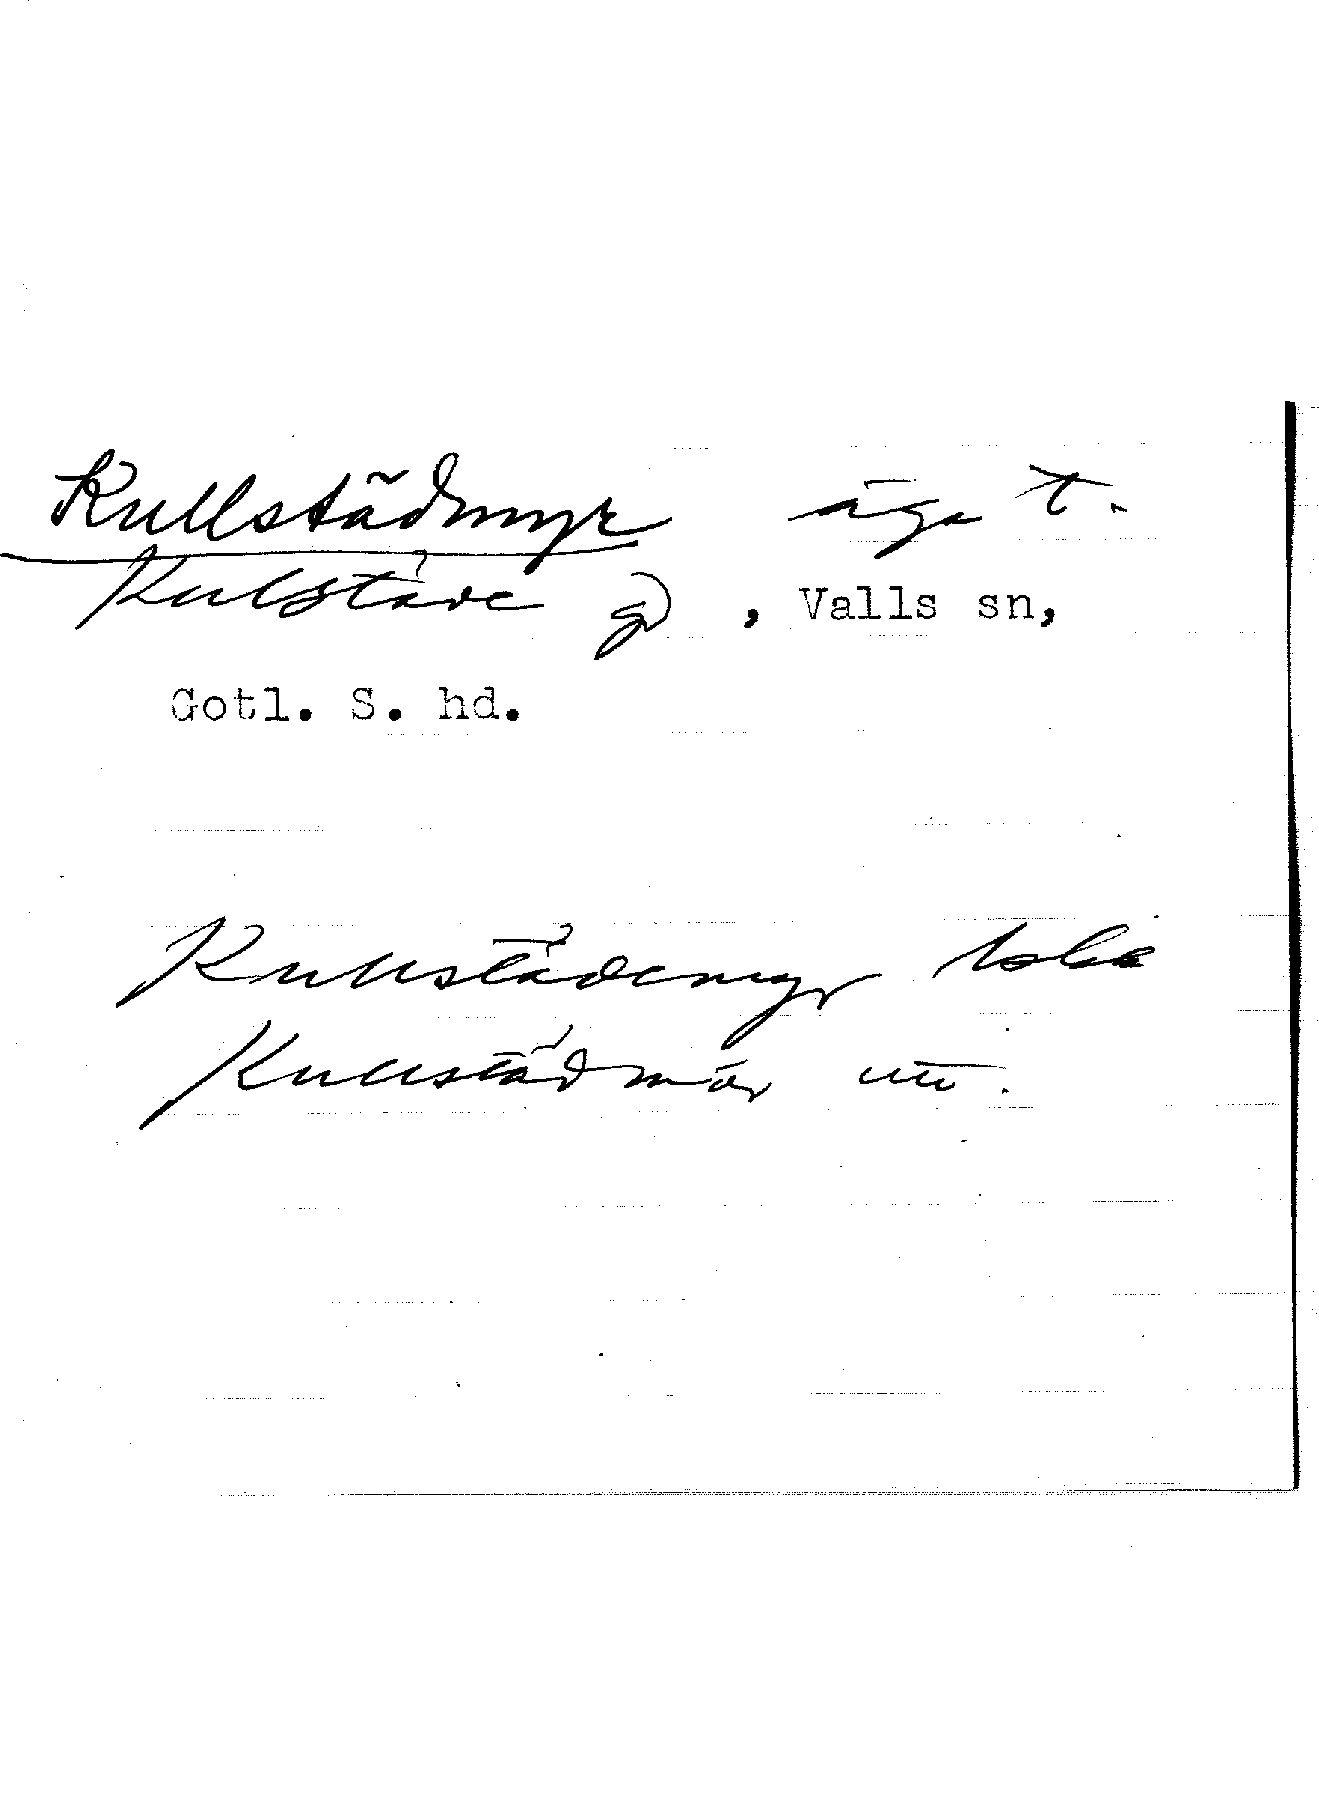 Kullstädmyr äga t.
Kulstäde gd, Valls sn,
Gotl. S. hd.
Kullstädemyr
Kullstädmör utt.